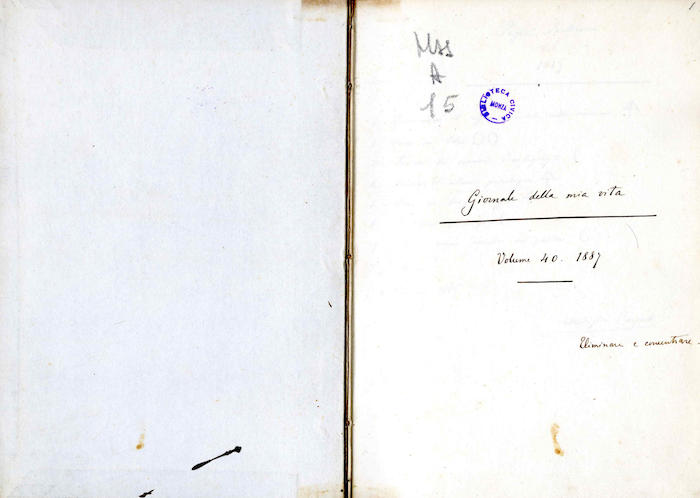 1
Mss
A
15
BIBLIOTECA CIVICA
MONZA
Giornale della mia vita
Volume 40. 1887
Eliminare e concentrare.